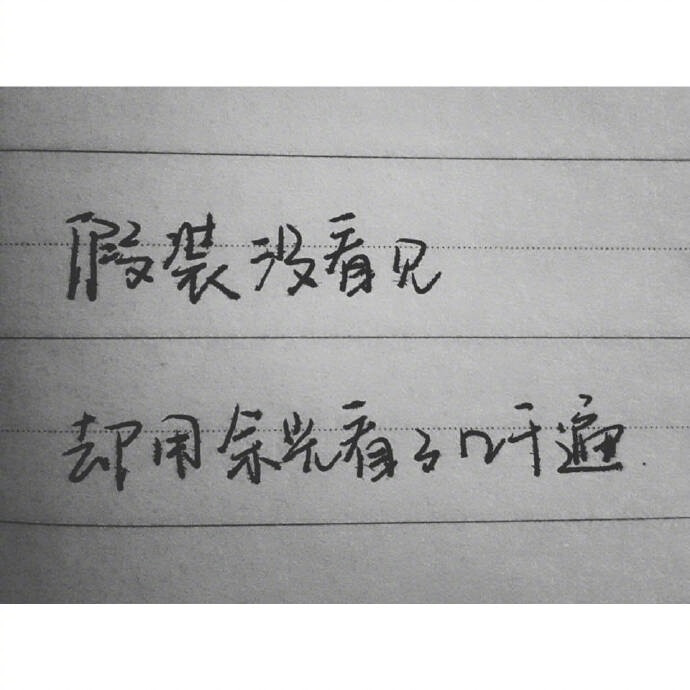 假装没看见
却用余光看了几千遍.